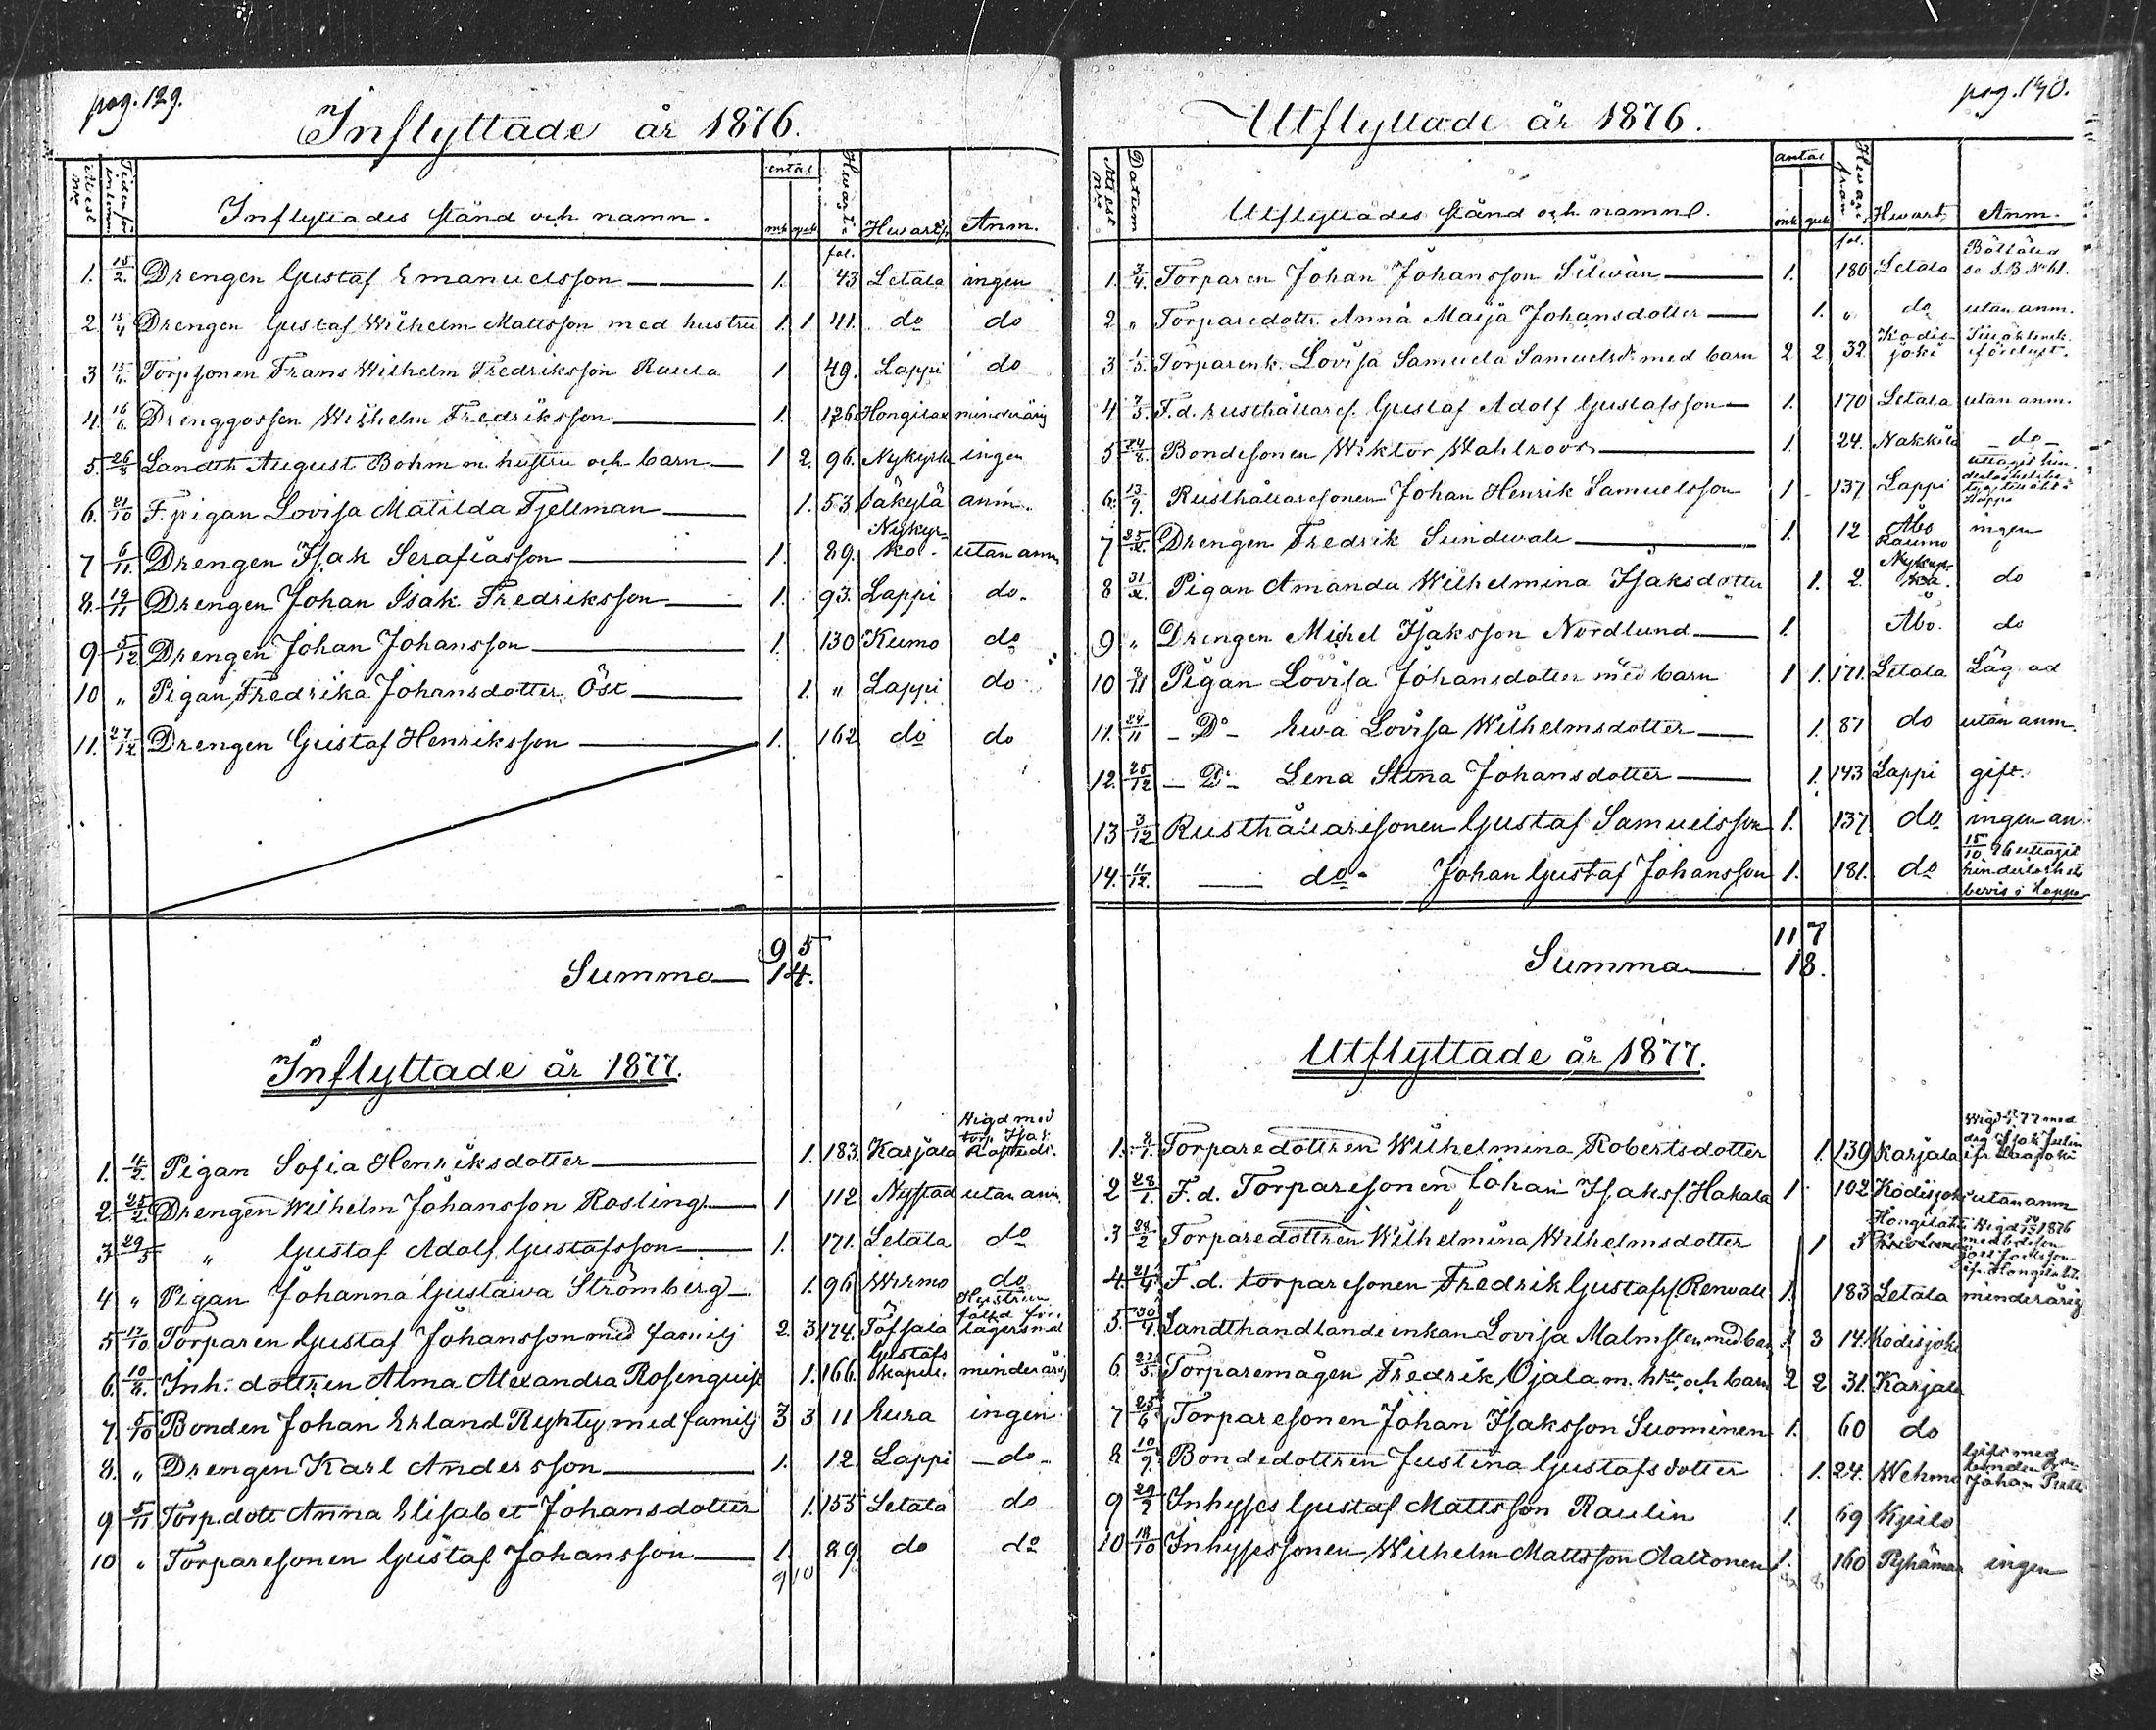 pag. 129.
Inflyttade år 1876.
Attest nr
antal
Inflyttades stånd och namn.
mk qvk
fol.
Anm.
1. 15/2 Drengen Gustaf Emanuelsson 1. 43 Letala ingen
2. 15/4 Drengen Gustaf Wilhelm Mattsson med hustru 1. 1 41. do do
3 Torpsonen Frans Wilhelm Fredriksson Raula 1 49. Lappi do
4. Drenggossen Wilhelm Fredriksson 1. 126 minderårig
5. 26/8 Landth August Bohm m. hustru och barn 1 2. 96. Nykyrko ingen
6. 21/10 F. pigan Lovisa Matilda Fjellman 1. 53 Säkylä anm.
7 6/11. Drengen Isak Serafiasson 1. 89. Nykyrko. utan anm
8. 19/11 Drengen Johan Isak Fredriksson 1. 93. Lappi do.
9 5/12 Drengen Johan Johansson 1. 130 Kumo do
10 „ Pigan Fredrika Johansdotter Öst 1. „ Lappi do
11. 27/12 Drengen Gustaf Henriksson 1. 162 do do
9 5
Summa 14.
Inflyttade år 1877.
1. 4/2. Pigan Sofia Henriksdotter 1. 183. Karjala Wigd med torp. Isak
2. 25/2. Drengen Wilhelm Johansson Rosling 1 112 Nystad utan anm.
3 29/5 „ Gustaf Adolf Gustafsson 1. 171. Letala do
4 „ Pigan Johanna Gustawa Strömberg 1. 96 Wirmo do
5 17/10 Torparen Gustaf Johansson med familj 2. 3 174. Töfsala Hustrun fälld för lägersmål
6. 10/8. Inh. dottren Alma Alexandra Rosenquist 1. 166. Gustafs kapell. minderårig
7. 5/10 Bonden Johan Erland Ryhty med familj 3 3 11 Eura ingen
8. „ Drengen Karl Andersson 1. 12. Lappi do
9 5/11 Torp. dott Anna Elisabet Johansdotter 1. 155 Letala do
10 „ Torparesonen Gustaf Johansson 1. 89. do do
9 10
pag. 140.
Utflyttade år 1876.
Attest nr
Datum
antal
Utflyttades stånd och namn.
mk qvk
Hvari från
fol.
Hwart
Anm.
1. 3/4. Torparen Johan Johansson Silwan 1. 180 Letala se S.B. No 61.
2 „ Torparedottr. Anna Maija Johansdotter 1. „ do utan anm.
3 1/5. Torparenk. Lovisa Samuela Samuelsdr med barn 2 2 32. Kodisjoki
4 7/5. F.d. rusthållares. Gustaf Adolf Gustafsson 1. 170 Letala utan anm.
5 24/8. Bondesonen Wiktor Wahlroos 1. 24. Nakkila do
6. 13/9. Rusthållaresonen Johan Henrik Samuelsson 1. 137 Lappi
7 Drengen Fredrik Sundvall 1. 12 Åbo Raumo ingen
8 31/X. Pigan Amanda Wilhelmina Isaksdotter 1. 2. Nykyrka. do
9 „ Drengen Mikel Isaksson Nordlund 1. Åbo. do
10 Pigan Lovisa Johansdotter med barn 1 1. 171. Letala Lägrad
11. 24/11 Do Ewa Lovisa Wilhelmsdotter 1. 87 do utan anm.
12. 25/12 Do Lena Stina Johansdotter 1. 143 Lappi gift.
13 3/12 Rusthållaresonen Gustaf Samuelsson 1. 137 do ingen an
14. 11/12. do Johan Gustaf Johansson 1. 181. do 15/10 76 uttagit hinderlöshets bevis i Lappo
11 7
Summa 18.
Utflyttade år 1877.
1. Torparedottren Wilhelmina Robertsdotter 1. 139 Karjala
2 28/1. F.d. Torparesonen Johan Isakss. Hakala 1. 102 Kodisjoki utan anm
3 28/2 Torparedottren Wilhelmina Wilhelmsdotter 1
4. F.d. torparesonen Fredrik Gustafss. Renvall 1. 183 Letala minderårig
5. Landthandlandeenkan Lovisa Malmsten med barn 3 14. Kodisjoki
6 Torparemågen Fredrik Ojala m. hru och barn 2 2 31. Karjala
7 25/6. Torparesonen Johan Isaksson Suominen 1. 60 do
8 10/9. Bondedottren Justina Gustafsdotter 1. 24. Wehmo Gift med bonden Johan
9 Inhyses Gustaf Mattsson Raulin 1. 69 Kjulo
10 18/10 Inhysessonen Wilhelm Mattsson Aaltonen 1. 160 Pyhämaa ingen
8 8